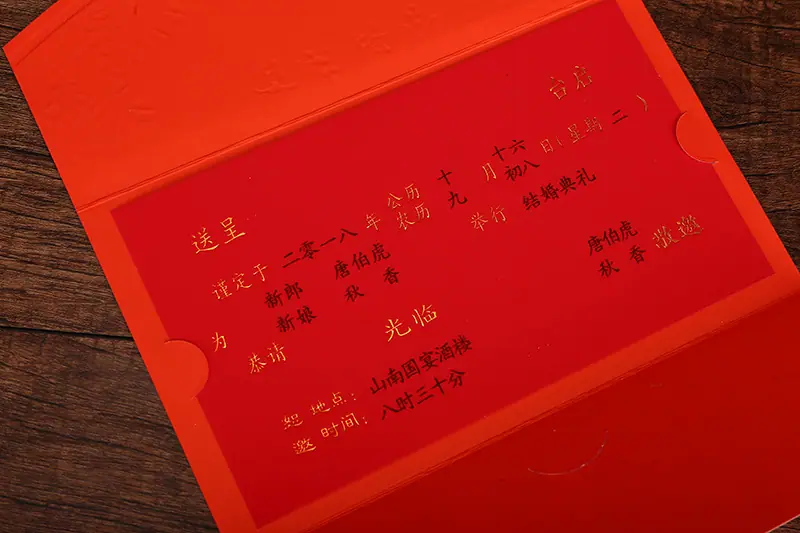 送呈 台启
谨定于 二零一八 年 公历 十 月 十六 日(星期 二 )
农历 九 初八
新郎 唐伯虎
新娘 秋香
举行 结婚典礼
为
恭请 光临
唐伯虎
秋香 敬邀
地点: 山南国宴酒楼
邀 时间: 八时三十分